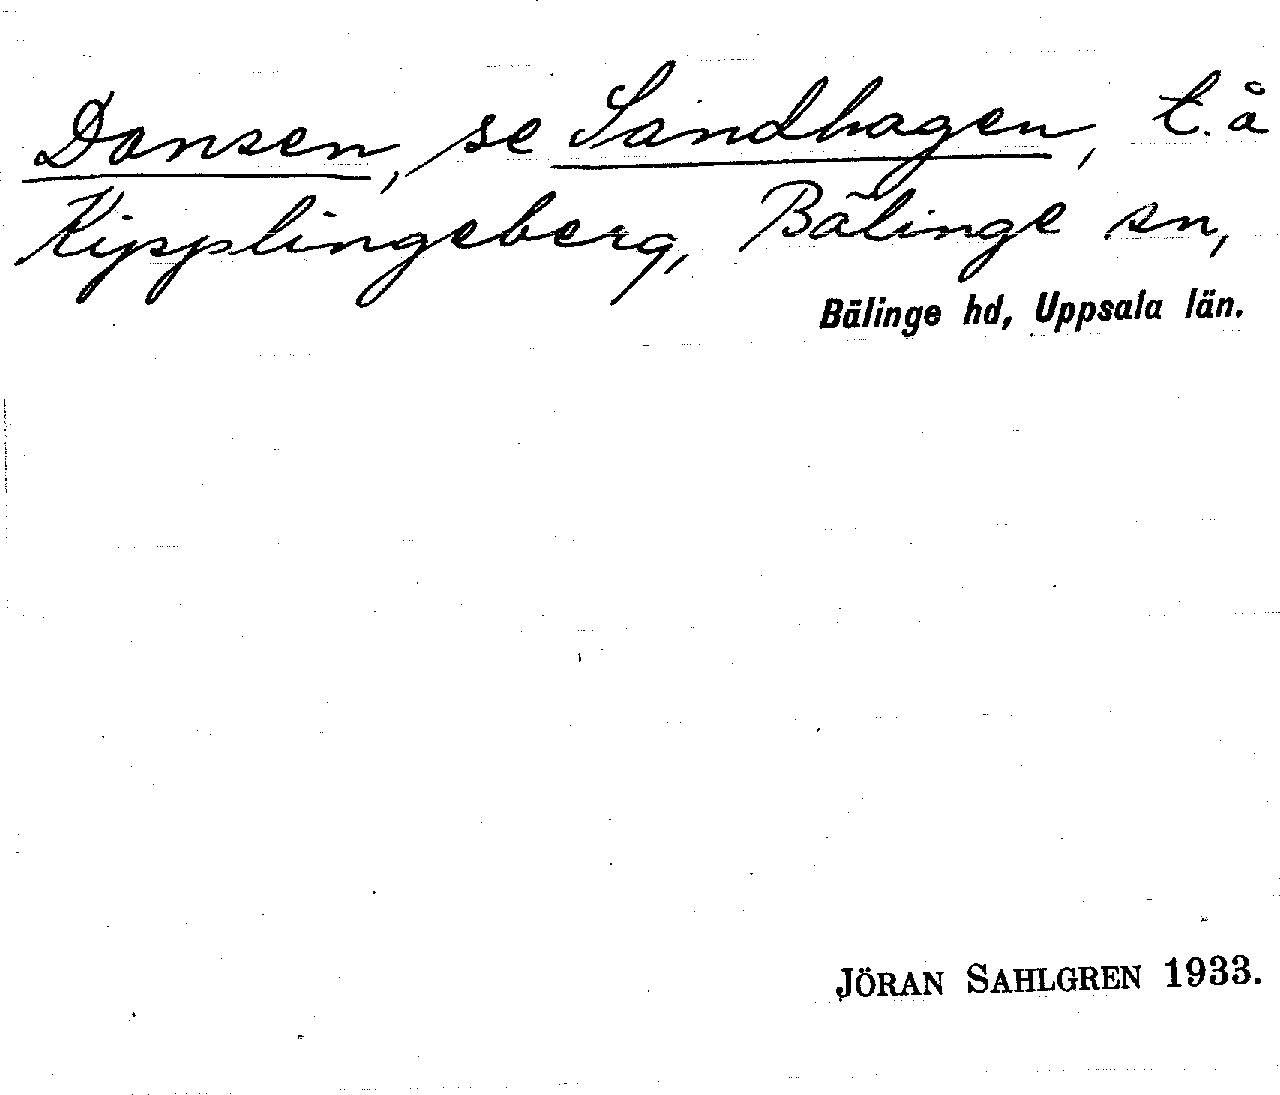 Dansen, se Sandhagen, t. å
Kipplingeberg, Bälinge sn,
Bälinge hd, Uppsala län.
JÖRAN SAHLGREN 1933.